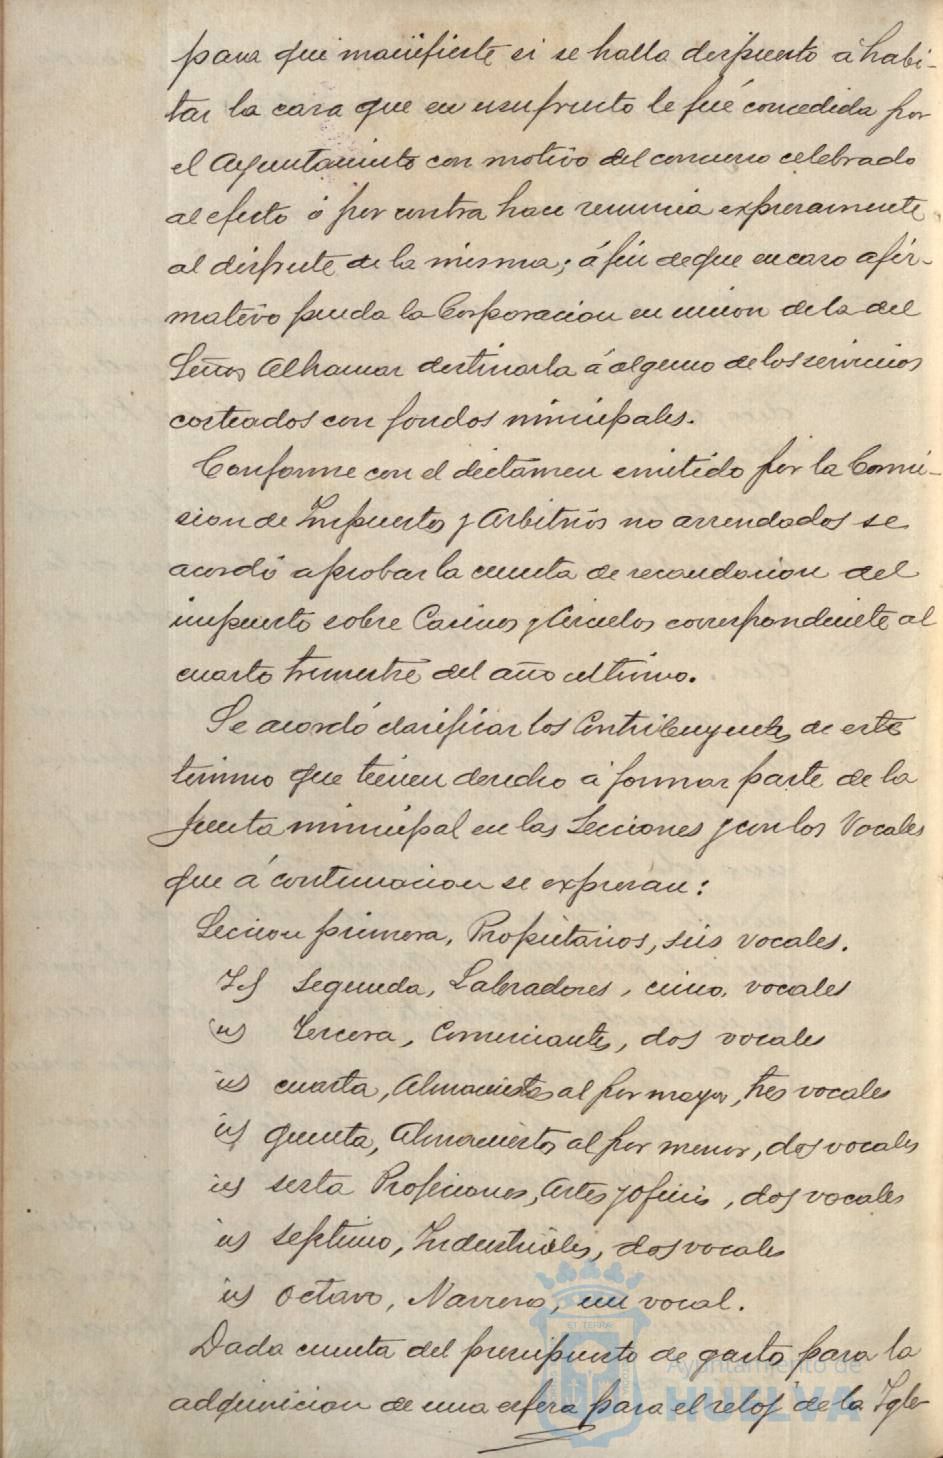 para que manifieste si se halla dispuesto á habi-
tar la casa que en usufructo le fué concedida por
el Ayuntamiento con motivo del concurso celebrado
al efecto ó por contra hace renuncia expresamente
al disfrute de la misma; á fin de que en caso afir-
mativo pueda la Corporacion en union de la del
Señor Alhamar destinarla á alguno de los servicios
costeados con fondos municipales.
Conforme con el dictámen emitido por la Comi-
sion de Impuestos y Arbitrios no arrendados se
acordó aprobar la cuenta de recaudacion del
impuesto sobre Casinos y Circulos correspondiente al
cuarto trimestre del año ultimo.
Se acordó clasificar los Contribuyentes de este
termino que tienen derecho á formar parte de la
Junta municipal en las Secciones y con los Vocales
que á continuacion se expresan:
Seccion primera, Propietarios, seis vocales.
Id Segunda, Labradores, cinco, vocales
id Tercera, Comerciantes, dos vocales
id cuarta, Almacenistas al por mayor, tres vocales
id quinta, Almacenistas al por menor, dos vocales
id sesta Profesiones, Artes y Oficios, dos vocales
id septimo, Industriales, dos vocales
id Octavo, Navieros, un vocal.
Dada cuenta del presupuesto de gasto para la
adquisicion de una esfera para el reloj de la Igle-
Ayuntamiento de
HUELVA